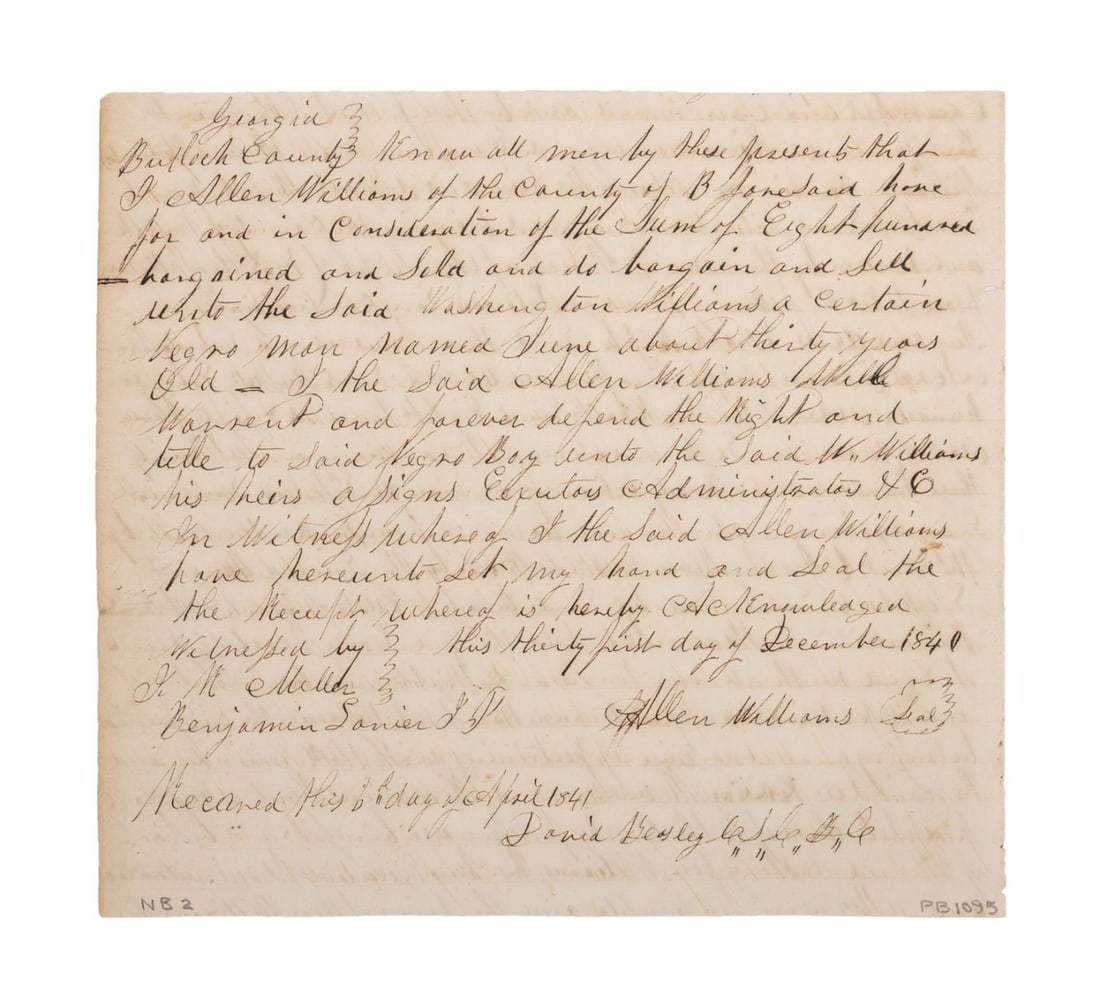 Georgia
Bulloch County Know all men by these presents that
I Allen Williams of the County of B foresaid have
for and in Consideration of the Sum of Eight hundred
= bargained and Sold and do bargain and Sell
unto the Said Washington Williams a Certain
Negro man named June about thirty years
Old = I the Said Allen Williams Will
Warrent and forever defend the Right and
title to Said Negro Boy unto the Said W,, Williams
his heirs assigns Exutors Administrators & C
In Witness whereof I the Said Allen Williams
have hereunto Set my hand and Seal the
the Receipt whereof is hereby Acknowledged
Witnessed by this thirty first day of December 1840
Miller
Benjamin Lanier J P Allen Williams Seal
Recorded this 6th day of April 1841
David Beasley C,, S,, C,, B,, C
NB2 PB1095